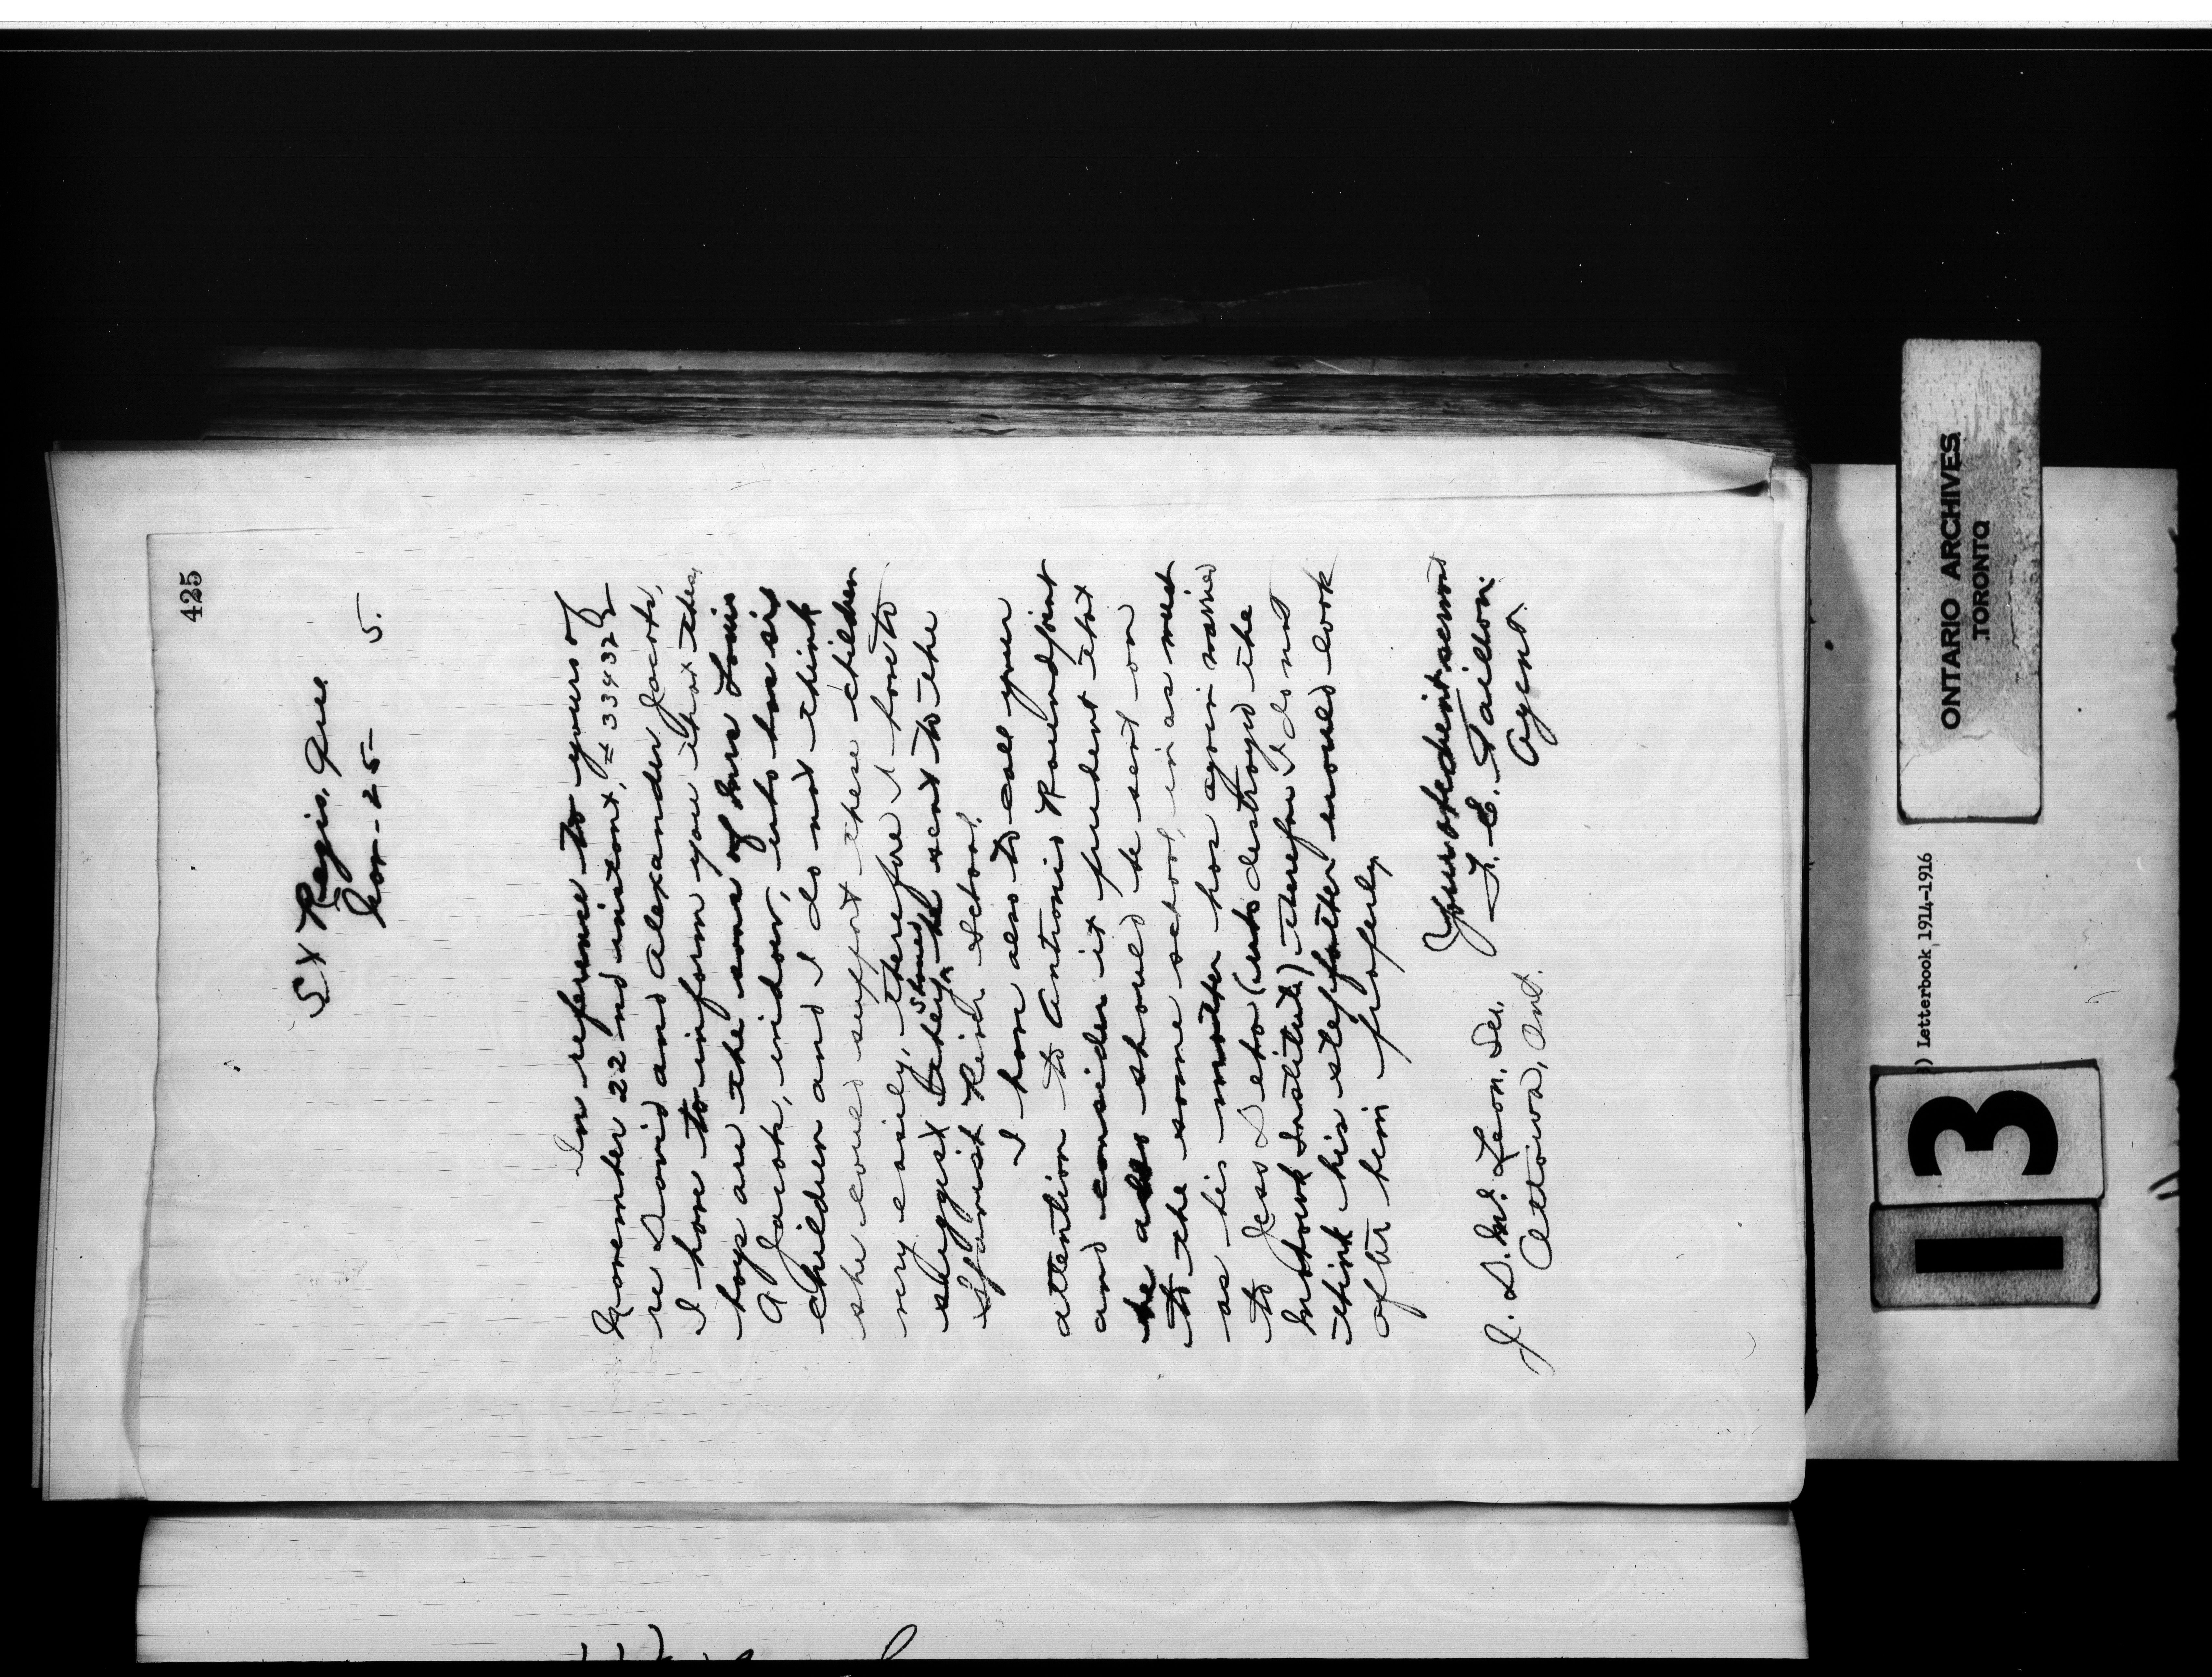 425
St Regis, Que
Nov - 25 - 5.
In reference to yours of
November 22nd instant, # 334322
re David and Alexander Jacobs,
I have to inform you that these
boys are the sons of Mrs Louis
A Jacobs, widow, who has six
children and I do not think
she could support these children
very easily, therefore I have to
suggest they should be sent to the
Spanish River School.
I have also to call your
attention to Antoine Roundpoint
and consider it prudent that
he also should be sent on
to the same school, in as much
as his mother has again married
to Jess Lebo (who destroyed the
Mohawk Institute) therefore I do not
think his stepfather would look
after him properly
Your obedient servant
F. E. Taillon
Agent.
J. D. McLean, Sec.
Ottawa, Ont.
ONTARIO ARCHIVES
TORONTO
) Letterbook 1914-1916
13